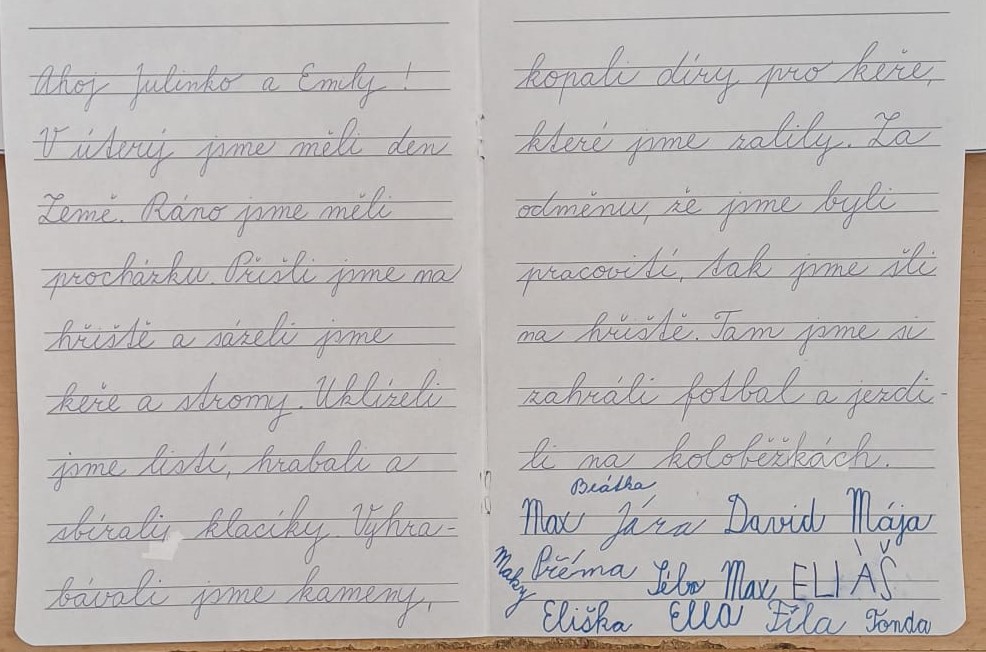 Ahoj Julinko a Emily!
V úterý jsme měli den
Země. Ráno jsme měli
procházku. Přišli jsme na
hřiště a sázeli jsme
keře a stromy. Uklízeli
jsme listí, hrabali a
sbírali klacíky. Vyhra-
bávali jsme kameny,
kopali díry pro keře,
které jsme zalily. Za
odměnu, že jsme byli
pracovití, tak jsme šli
na hřiště. Tam jsme si
zahráli fotbal a jezdi-
li na koloběžkách.
Beátka
Max Jára David Mája
Maky Přéma Max ELIÀŠ
Eliška Ella Fíla Tonda